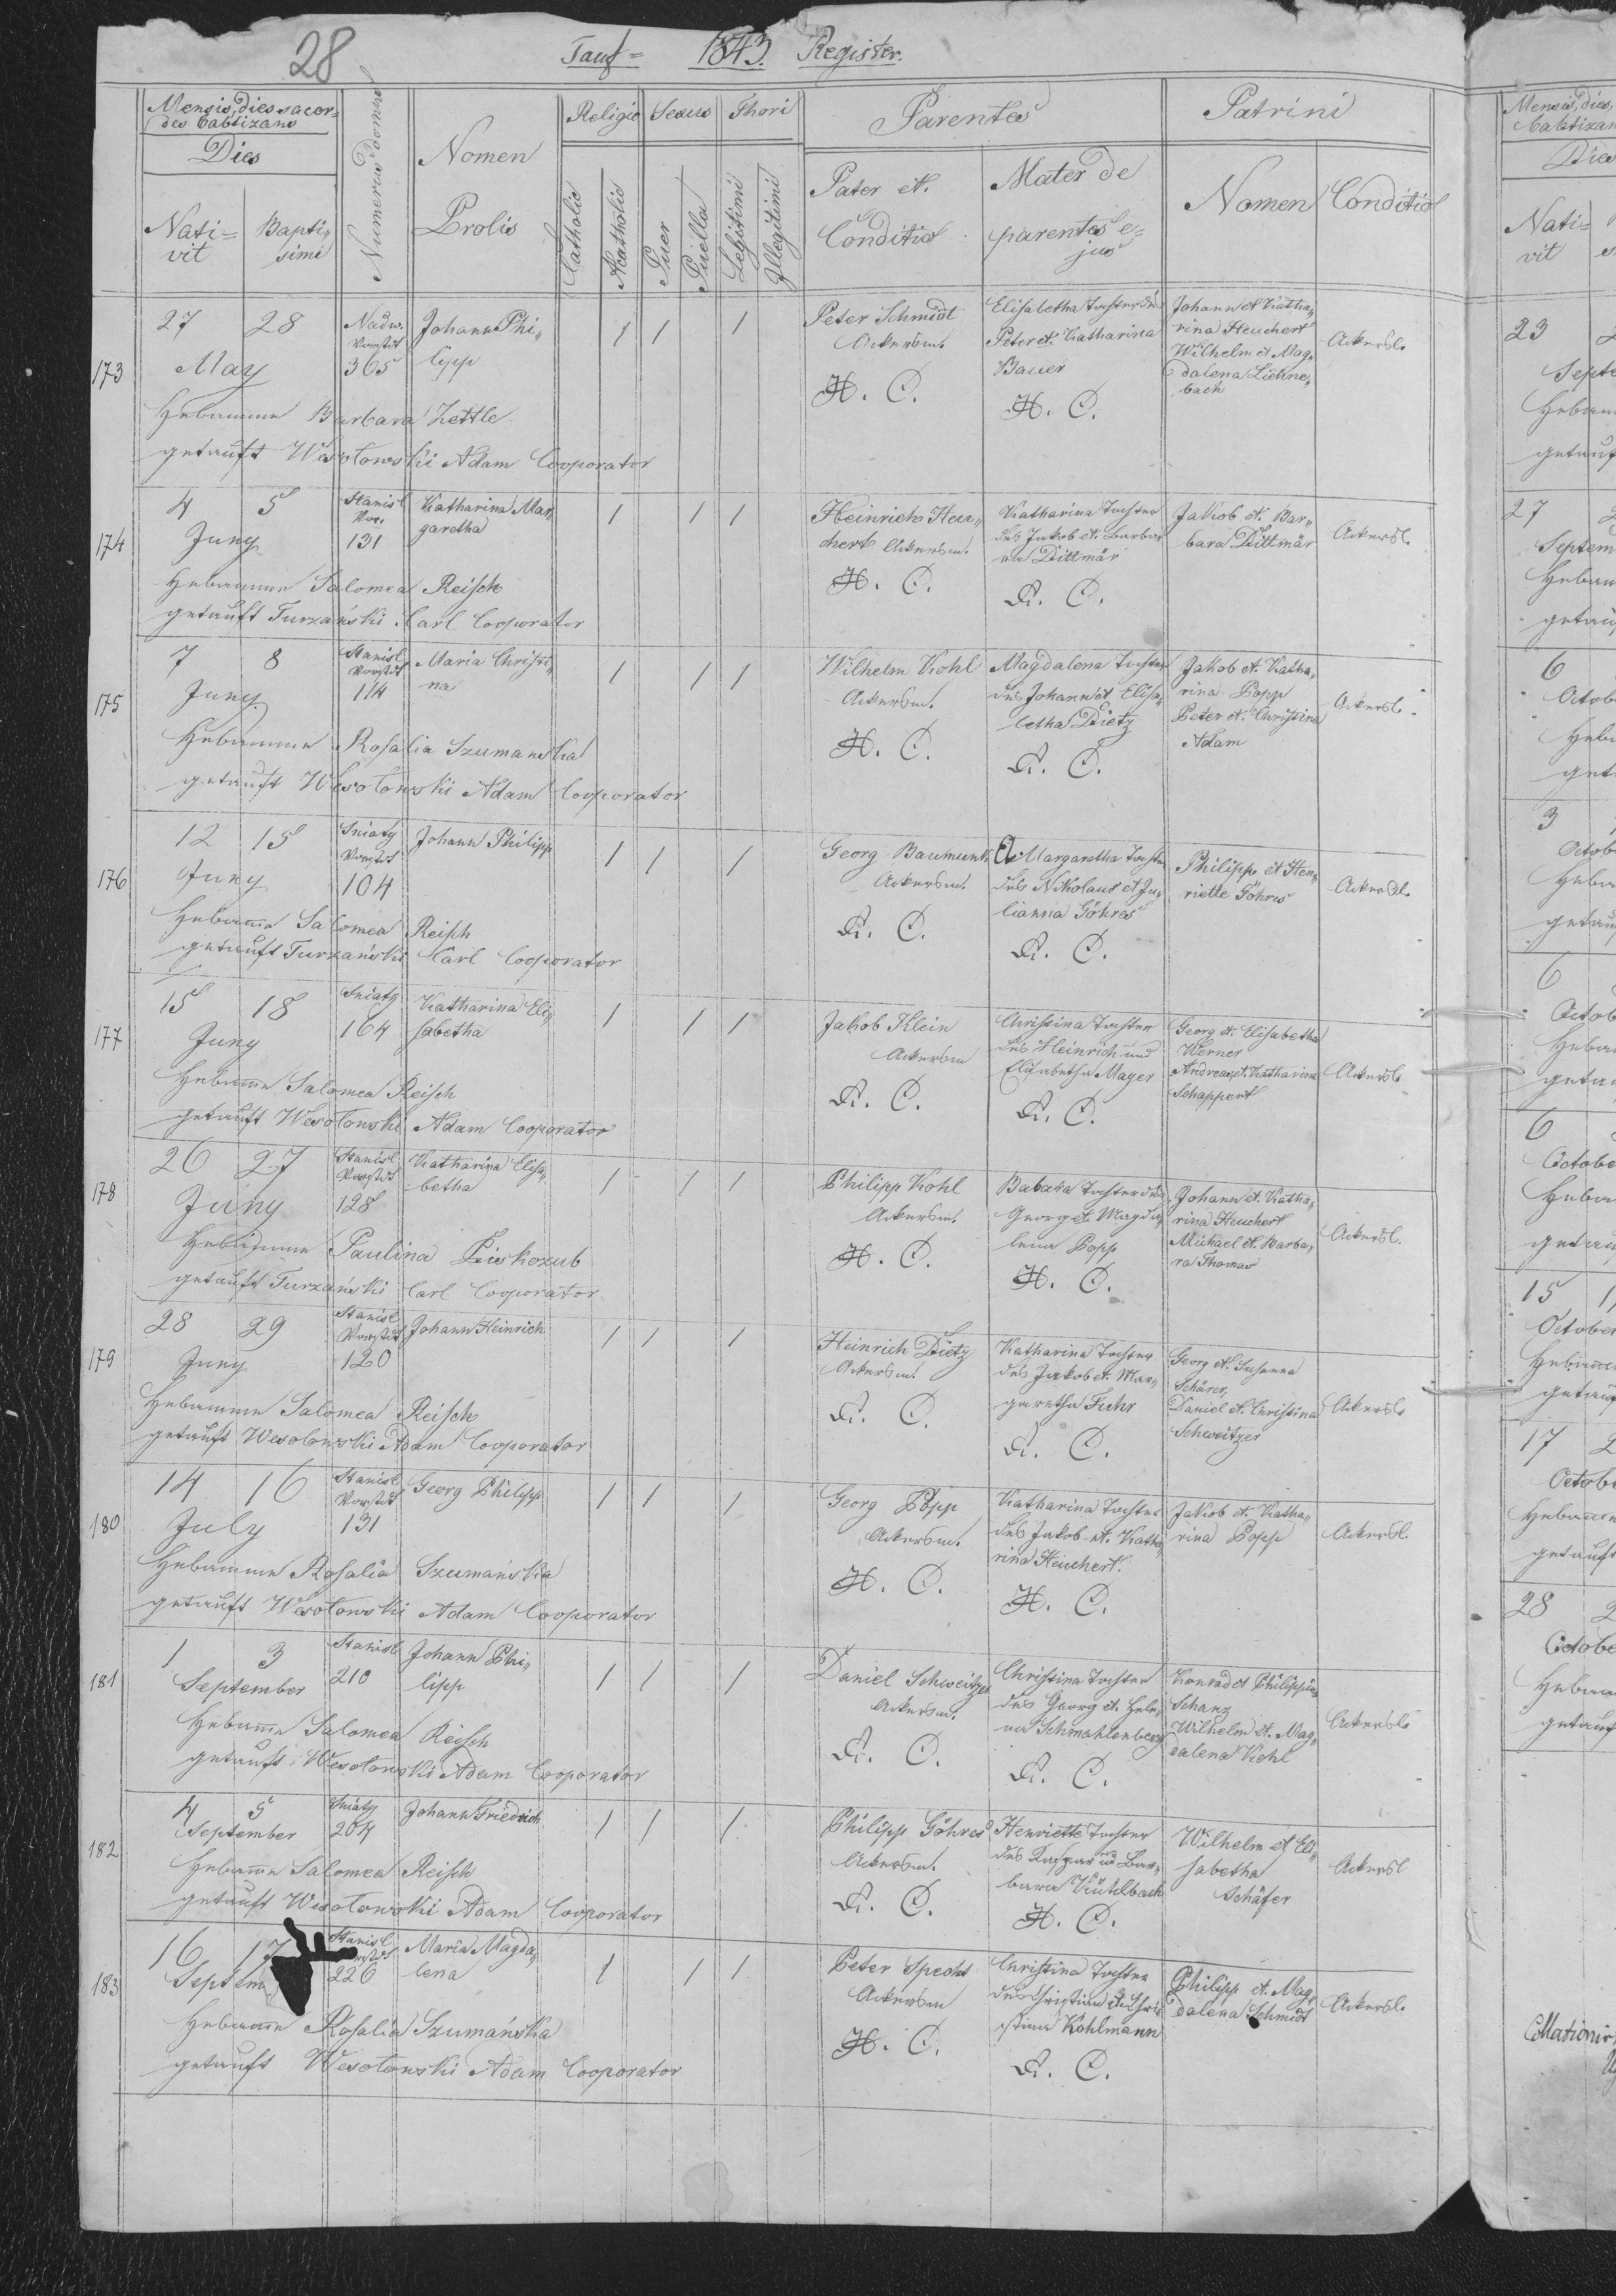 28
Tauf= 1843. Register.
Mensis, dies sacer=
des babtizans
Dies
Nati=
vit
Bapti„
simi
Numerus domus
Nomen
Prolis
Religio
Catholic
Acatholic
Sexus
Puer
Puella
Thori
Legitimi
Illegitimi
Parentes
Pater et.
Conditio
Mater de
parentes e=
jus
Patrini
Nomen
Conditio
173
27 28
May
Nadw.
Vorstdt
365
Johann Phi„
lipp
1 1 1
Peter Schmidt
Ackersm.
H. C.
Elisabetha Tochter des
Peter et. Katharina
Bauer
H. C.
Johann et Katha„
rina Heuchert
Wilhelm et Mag„
dalena
bach
Ackersl.
Hebamme Barbara Zettle
getauft Wesotowski Adam Cooporator
174
4 5
Juny
Stanisl
Vor.
131
Katharina Mar„
garetha
1 1 1
Heinrich Heu„
chert Ackersm.
H. C.
Katharina Tochter
des Jakob et. Barba
ra Dittmär
A. C.
Jakob et. Bar„
bara Dittmär
Ackersl.
Hebamme Salomea Reisch
getauft Turzański Carl Cooporator
175
7 8
Juny
Stanisl
Vorstdt
114
Maria Christi„
na
1 1 1
Wilhelm Kohl
Ackersm.
H. C.
Magdalena Tochter
des Johann et Elisa„
betha Dietz
A. C.
Jakob et. Katha„
rina Popp
Peter et. Christina
Adam
Ackersl.
Hebamme Rosalia Szumanska
getauft Wesotowski Adam Cooporator
176
12 15
Juny
Sniaty
Vorstdt
104
Johann Philipp
1 1 1
Georg Baumunk
Ackersm.
A. C.
Margaretha Tochter
des Nikolaus et Ju„
lianna Göhres
A. C.
Philipp et Hen„
riette Göhres
Ackersl.
Hebamme Salomea Reisch
getauft Turzański Karl Cooporator
177
15 18
Juny
Sniaty
164
Katharina Eli„
sabetha
1 1 1
Jakob Klein
Ackersm
A. C.
Christina Tochter
des Heinrich und
Elisabetha Mayer
A. C.
Georg et. Elisabetha
Werner
Andreas et. Katharina
Schappert
Ackersl.
Hebamme Salomea Reisch
getauft Wesotowski Adam Cooporator
178
26 27
Juny
Stanisl
Vorstdt
128
Katharina Elisa„
betha
1 1 1
Philipp Kohl
Ackersm.
H. C.
Babara Tochter des
Georg et Magda„
lena Popp
H. C.
Johann et. Katha„
rina Heuchert
Michael et. Barba„
ra Thomas
Ackersl.
Hebamme Paulina Piskozub
getauft Turzański Carl Cooporator
179
28 29
Juny
Stanisl
Vorstdt
120
Johann Heinrich
1 1 1
Heinrich Dietz
Ackersm.
A. C.
Katharina Tochter
des Jakob et. Mar„
garetha Fuhr
A. C.
Georg et. Susanna
Schärer,
Daniel et. Christina
Schweitzer
Ackersl.
Hebamme Salomea Reisch
getauft Wesolowski Adam Cooporator
180
14 16
July
Stanisl
Vorstdt
131
Georg Philipp
1 1 1
Georg Popp
Ackersm.
H. C.
Katharina Tochter
des Jakob et. Katha„
rina Heuchert.
H. C.
Jakob et. Katha„
rina Popp
Ackersl.
Hebamme Rosalia Szumańska
getauft Wesotowski Adam Cooporator
181
1 3
September
Stanisl
210
Johann Phi„
lipp
1 1 1
Daniel Schweitzer
Ackersm.
A. C.
Christina Tochter
des Georg et. Hele„
na Schmahlenberg
A. C.
Konrad et Philippina
Schanz
Wilhelm et. Mag„
dalena Kohl
Ackersl.
Hebamme Salomea Reisch
getauft Wesotowski Adam Cooporator
182
4 5
September
Sniaty
204
Johann Friedrich
1 1 1
Philipp Göhres
Ackersm.
A. C.
Henriette Tochter
des Kaspar Bar„
bara
H. C.
Wilhelm et Eli„
sabetha
Schäfer
Ackersl.
Hebamme Salomea Reisch
getauft Wesotowski Adam Cooporator
183
16 17
Septem
Stanisl
Vorstdt
226
Maria Magda„
lena
1 1 1
Peter Specht
Ackersm
H. C.
Christina Tochter
des Christian et. Chri„
stina Kohlmann
A. C.
Philipp et. Mag„
dalena Schmidt
Ackersl.
Hebamme Rosalia Szumańska
getauft Wesotowski Adam Cooporator
Mensis, dies,
babtizan
Dies
Nati=
vit
23
Septe
Heban
getauf
27
Septem
Heban
getau
6
Octob
Heba
get
3
Octob
Heba
getau
6
Octob
Heba
geta
6
Octobe
Heba
getau
15
October
Hebam
getau
17
Octob
Hebamm
getauf
28
Octobe
Heba
getauf
Collationir